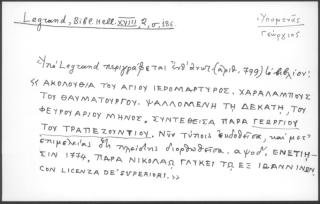 Legrand, Bibl. Hell. XVIII, 2, σ, 186.
Ὑπομενᾶς
Γεώργιος
Ὑπὸ Legrand περιγράφεται ὑπ' ἀριθ. (ἀριθ. 799) τὸ βιβλίον:
« ΑΚΟΛΟΥΘΙΑ ΤΟΥ ΑΓΙΟΥ ΙΕΡΟΜΑΡΤΥΡΟΣ, ΧΑΡΑΛΑΜΠΟΥΣ
ΤΟΥ ΘΑΥΜΑΤΟΥΡΓΟΥ. ΨΑΛΛΟΜΕΝΗ ΤΗ ΔΕΚΑΤΗ, ΤΟΥ
ΦΕΥΡΟΥΑΡΙΟΥ ΜΗΝΟΣ. ΣΥΝΤΕΘΕΙΣΑ ΠΑΡΑ ΓΕΩΡΓΙΟΥ
ΤΟΥ ΤΡΑΠΕΖΟΥΝΤΙΟΥ. Νῦν τύποις ἐκδοθεῖσα, καὶ μετ'
ἐπιμελείας ὅτι πλείστης διορθωθεῖσα. αψοδ'. ΕΝΕΤΙΗ-
ΣΙΝ 1774. ΠΑΡΑ ΝΙΚΟΛΑΩ ΓΛΥΚΕΙ ΤΩ ΕΞ ΙΩΑΝΝΙΝΩΝ.
CON LICENZA DE' SUPERIORI. »